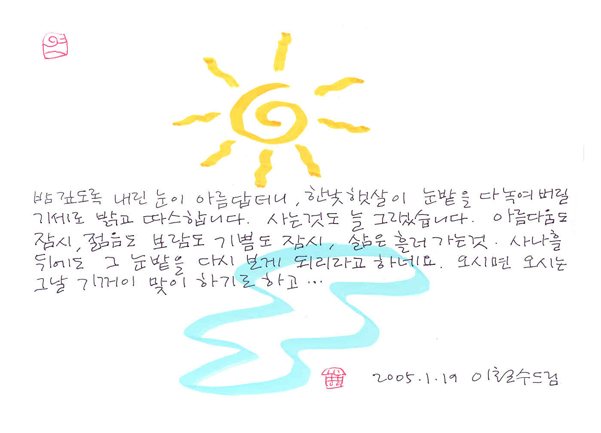 밤 깊도록 내린 눈이 아름답더니, 한낮 햇살이 눈밭을 다 녹여 버릴
기세로 밝고 따스합니다. 사는것도 늘 그렇습니다. 아름다움도
잠시, 젊음도 보람도 기쁨도 잠시, 삶은 흘러 가는것. 사나흘
뒤에도 그 눈밭을 다시 보게 되리라고 하네요. 오시면 오시는
그날 기꺼이 맞이 하기로 하고…
2005.1.19 이철수드림